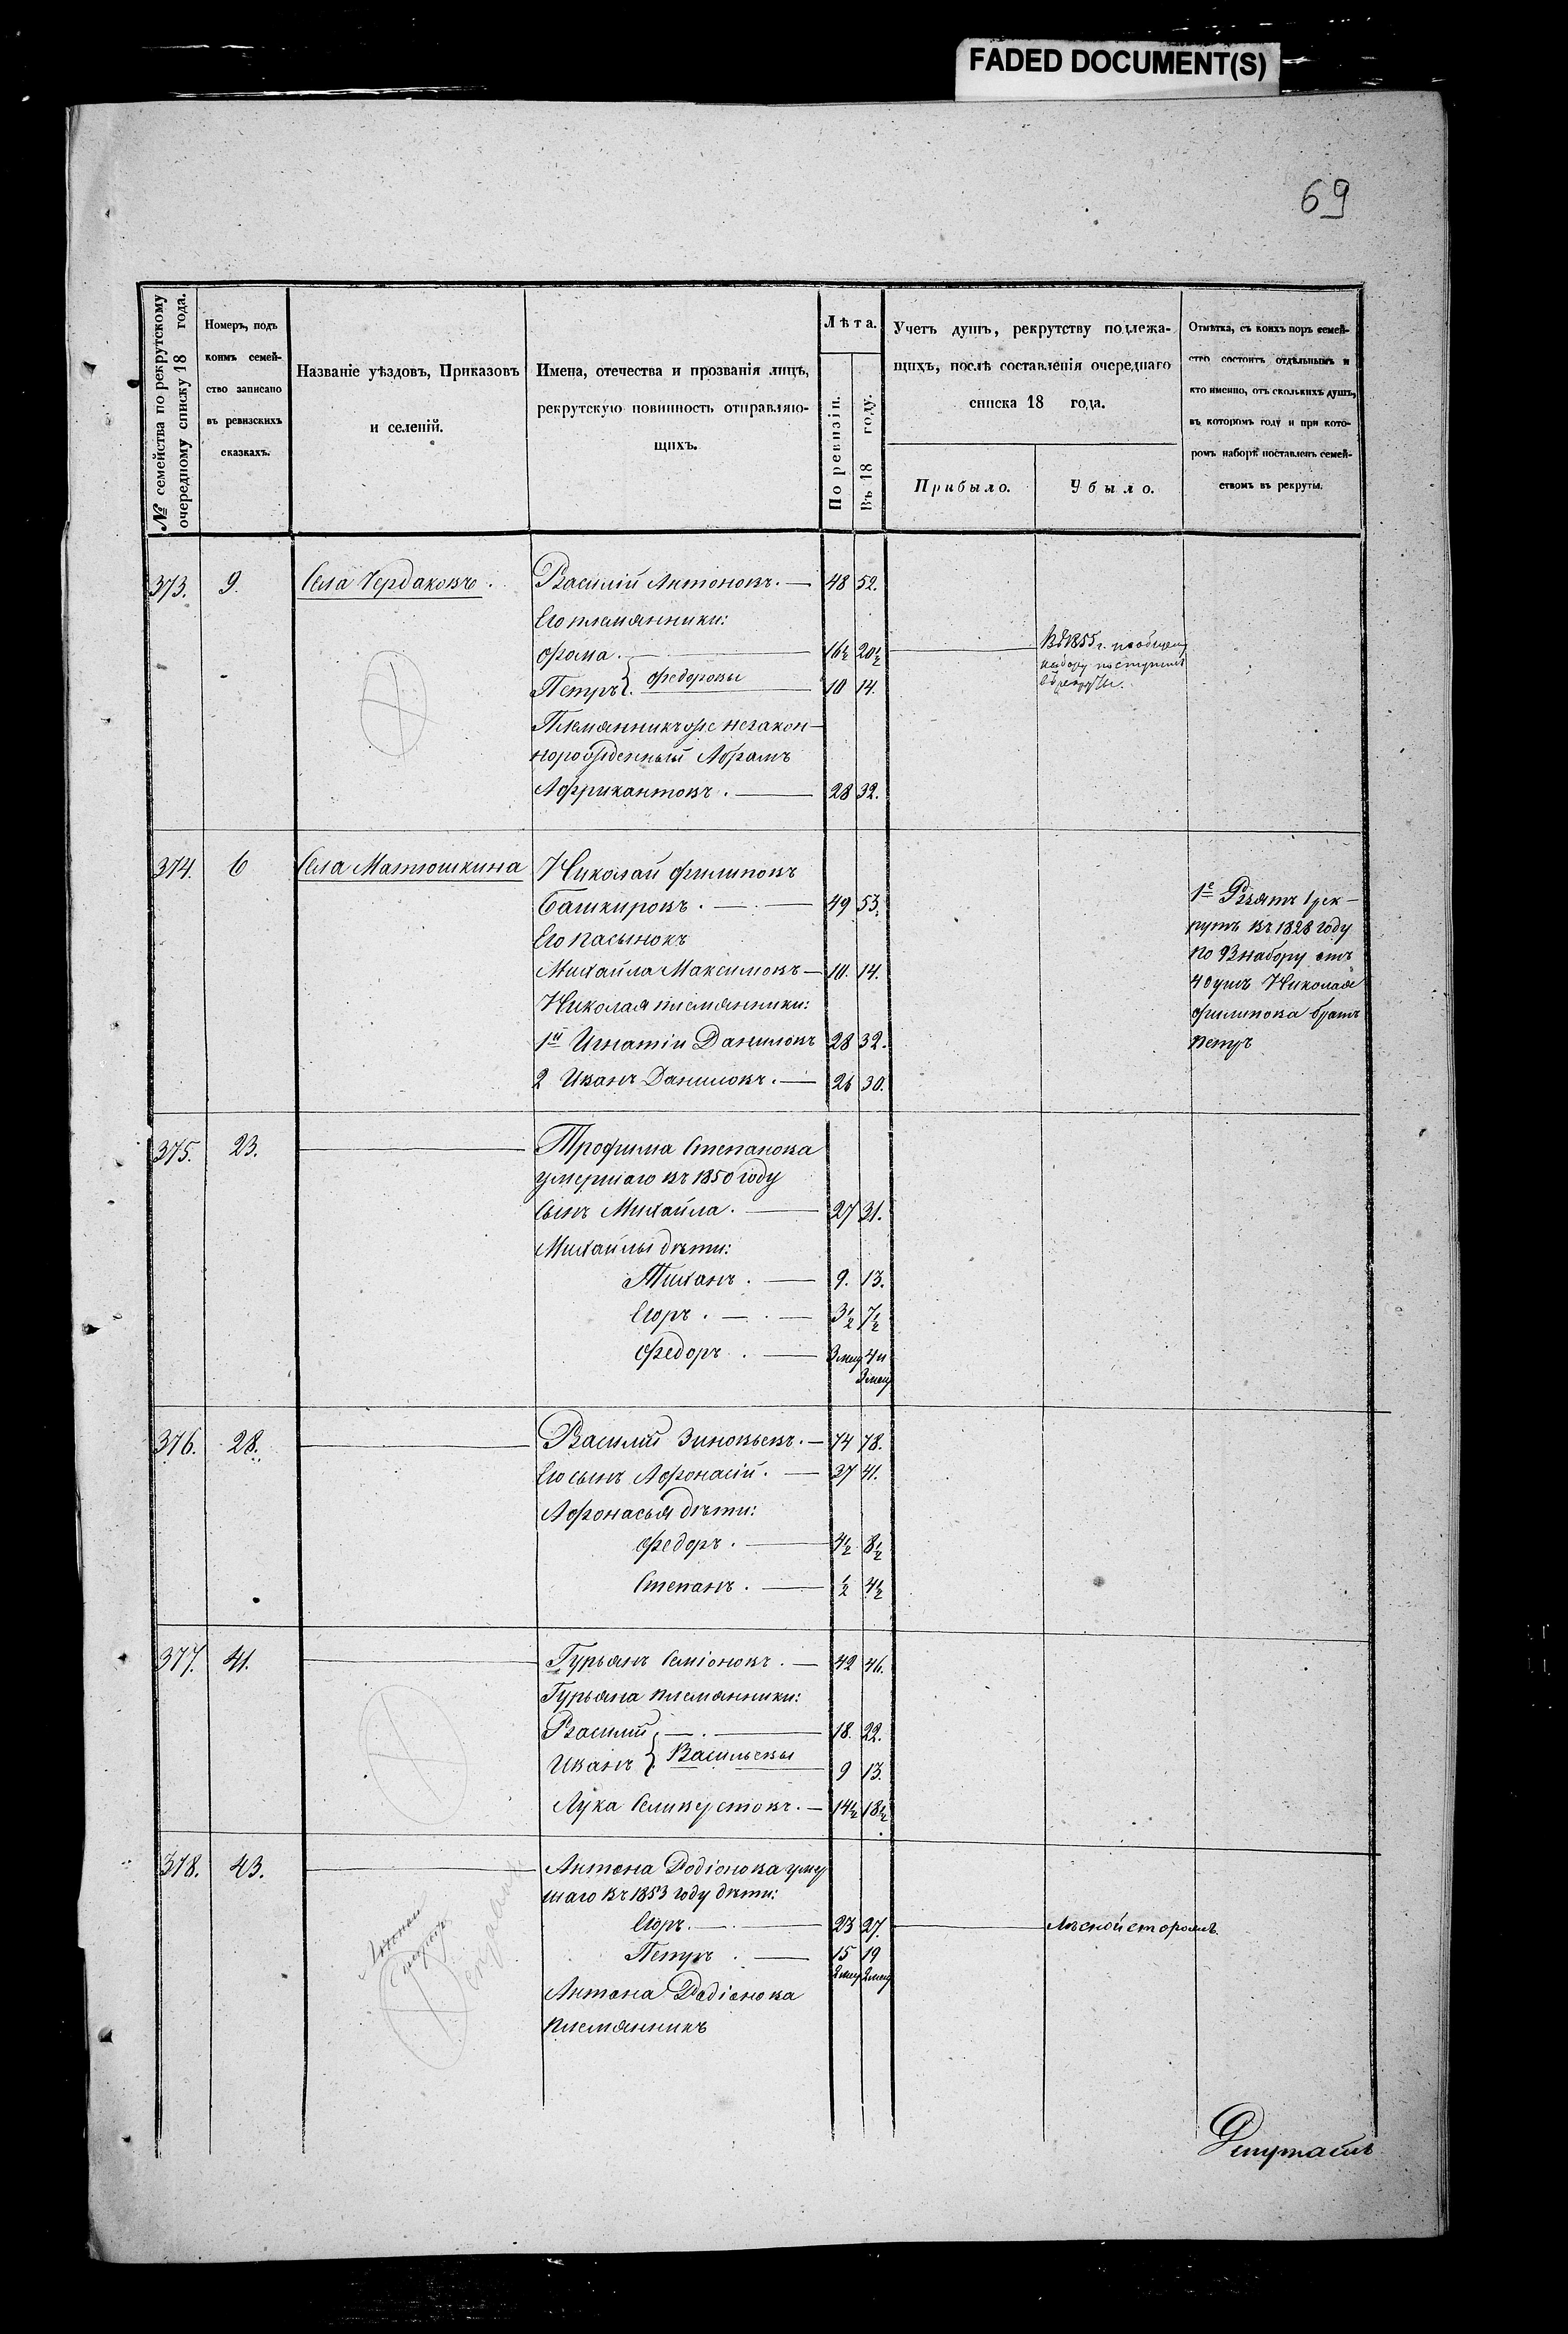 FADED DOCUMENT(S)
69
№ семейства по рекрутскому
очередному списку 18 года.
Номеръ, подъ
коимъ семей-
ство записано
въ ревизскихъ
сказкахъ.
Названіе уѣздовъ, Приказовъ
и селеній.
Имена, отечества и прозванія лицъ,
рекрутскую повинность отправляю-
щихъ.
Лѣта.
По ревизіи.
Въ 18 году.
Учетъ душъ, рекрутству подлежа-
щихъ, послѣ составленія очереднаго
списка 18 года.
Прибыло.
Убыло.
Отмѣтка, съ коихъ поръ семей-
ство состоитъ отдѣльнымъ и
кто именно, отъ сколькихъ душъ,
въ которомъ году и при кото-
ромъ наборѣ поставленъ семей-
ствомъ въ рекруты.
373. 9. Села Чердаковъ. Василій Антоновъ. 48 52.
Его племянники:
Фома. 16½ 20½
Въ 1855 г. по общему
набору поступилъ
въ рекруты.
Петръ } Федоровы 10 14.
Племянникъ же незакон-
норожденный Абрамъ
Африкантовъ. 28 32.
374. 6 Села Матюшкина Николай Филиповъ
Башкировъ. 49 53.
Его пасынокъ
Михайла Максимовъ 10. 14.
Николая племянники:
1й Игнатій Даниловъ 28 32.
2 Иванъ Даниловъ. 26 30.
1е Взятъ 1 рек-
рутъ въ 1828 году
по набору отъ
4 душъ Николая
Филипова братъ
Петръ
375. 23. Трофима Степанова
умершаго въ 1850 году
сынъ Михайла. 27 31.
Михайлы дѣти:
Тиханъ. 9. 13.
Егоръ. 3½ 7½
Федоръ. 3 мец 4 и
3 мец
376. 28. Василій Зиновьевъ. 74 78.
Его сынъ Афонасій. 37 41.
Афонасья дѣти:
Федоръ. 4½ 8½
Степанъ. ½ 4½
377. 41. Гурьянъ Семіоновъ. 42 46.
Гурьяна племянники:
Василій 18. 22.
Иванъ } Васильевы 9 13.
Лука Селиверстовъ. 14½ 18½
378. 43. Антона Родіонова умер
шаго въ 1853 году дѣти:
Егоръ. 23 27. Лѣсной сторожъ.
Петръ. 15 19
2 мец 2 мец
Антона Родіонова
племянникъ
Депутатъ